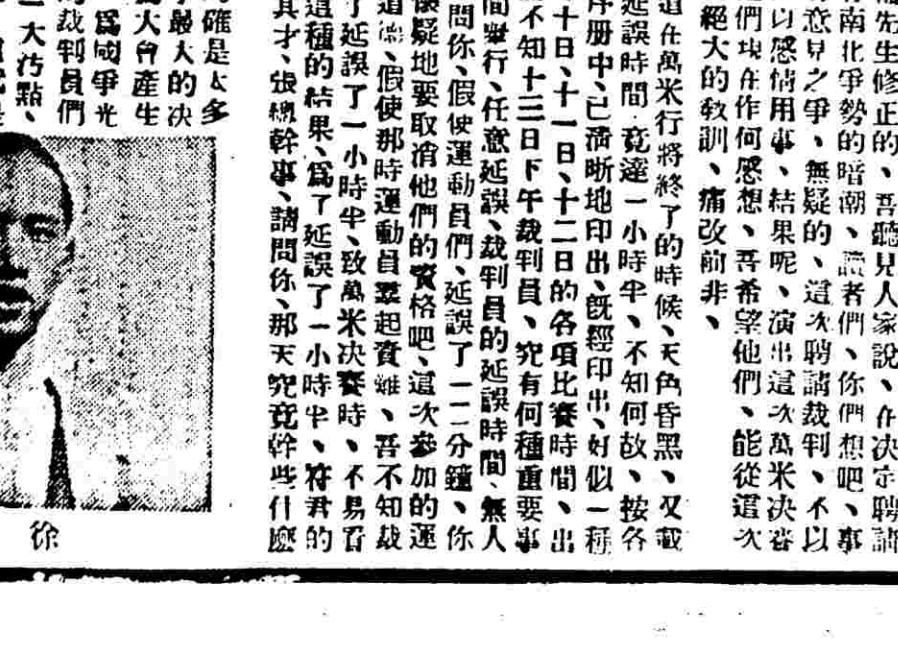 先生修正的、吾聽見人家說、在决定聘請
南北爭勢的暗潮、讀者們、你們想吧、事
意見之爭、無疑的、這次聘請裁判、不以
以感情用事、結果呢、演出這次萬米决賽
們現在作何感想、吾希望他們、能從這次
絕大的敎訓、痛改前非、
在萬米行將終了的時候、天色昏黑、又誤
延誤時間、竟達一小時半、不知何故、按各
序册中、已淸晰地印出、旣經印出、好似一種
十日、十一日、十二日的各項比賽時間、出
不知十三日下午裁判員、究有何種重要事
間舉行、任意延誤、裁判員的延誤時間、無人
問你、假使運動員們、延誤了一二分鐘、你
懷疑地要取消他們的資格吧、這次參加的運
道、假使那時運動員羣起責難、吾不知裁
了延誤了一小時半、致萬米决賽時、不易看
這種的結果、爲了延誤了一小時半、符君的
其才、張總幹事、請問你、那天究竟幹些什麼
確是太多
最大的决
大會產生
爲國爭光
裁判員們
一大汚點、
徐